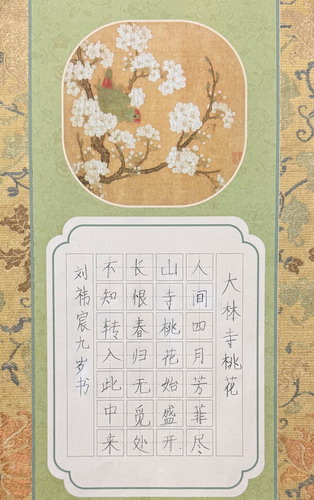 大林寺桃花
人间四月芳菲尽
山寺桃花始盛开.
长恨春归无觅处
不知转入此中来
刘祎宸九岁书